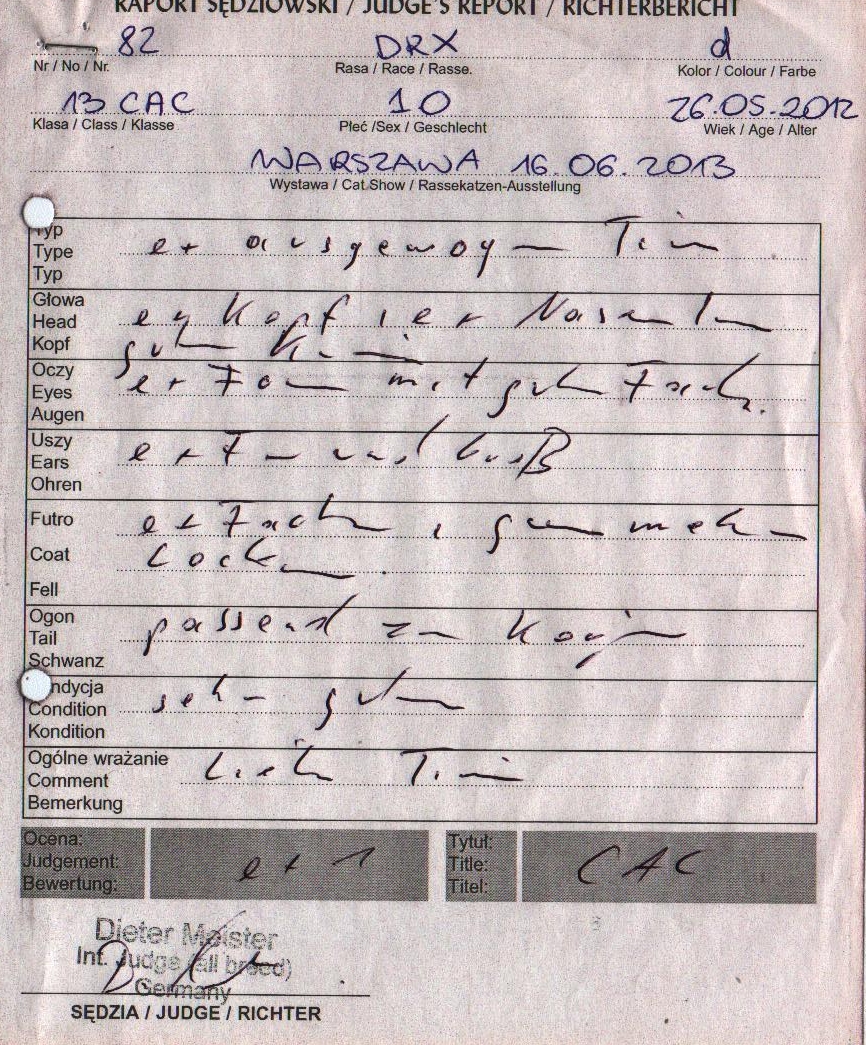 RAPORT SĘDZIOWSKI / JUDGE'S REPORT / RICHTERBERICHT
82 DRX d
Nr / No / Nr. Rasa / Race / Rasse. Kolor / Colour / Farbe
13 CAC 10 26.05.2012
Klasa / Class / Klasse Płeć /Sex / Geschlecht Wiek / Age / Alter
WARSZAWA 16.06.2013
Wystawa / Cat Show / Rassekatzen-Ausstellung
Typ
Type ex
Typ
Głowa
Head Kopf
Kopf gutes Kinn
Oczy
Eyes ex Form mit guter Farbe.
Augen
Uszy
Ears ex
Ohren
Futro ex
Coat Locken.
Fell
Ogon
Tail passend zum Körper
Schwanz
Kondycja
Condition sehr gut
Kondition
Ogólne wrażanie
Comment
Bemerkung
Ocena: Tytuł:
Judgement: ex 1 Title: CAC
Bewertung: Titel:
Dieter Meister
Int. Judge (all breed)
Germany
SĘDZIA / JUDGE / RICHTER